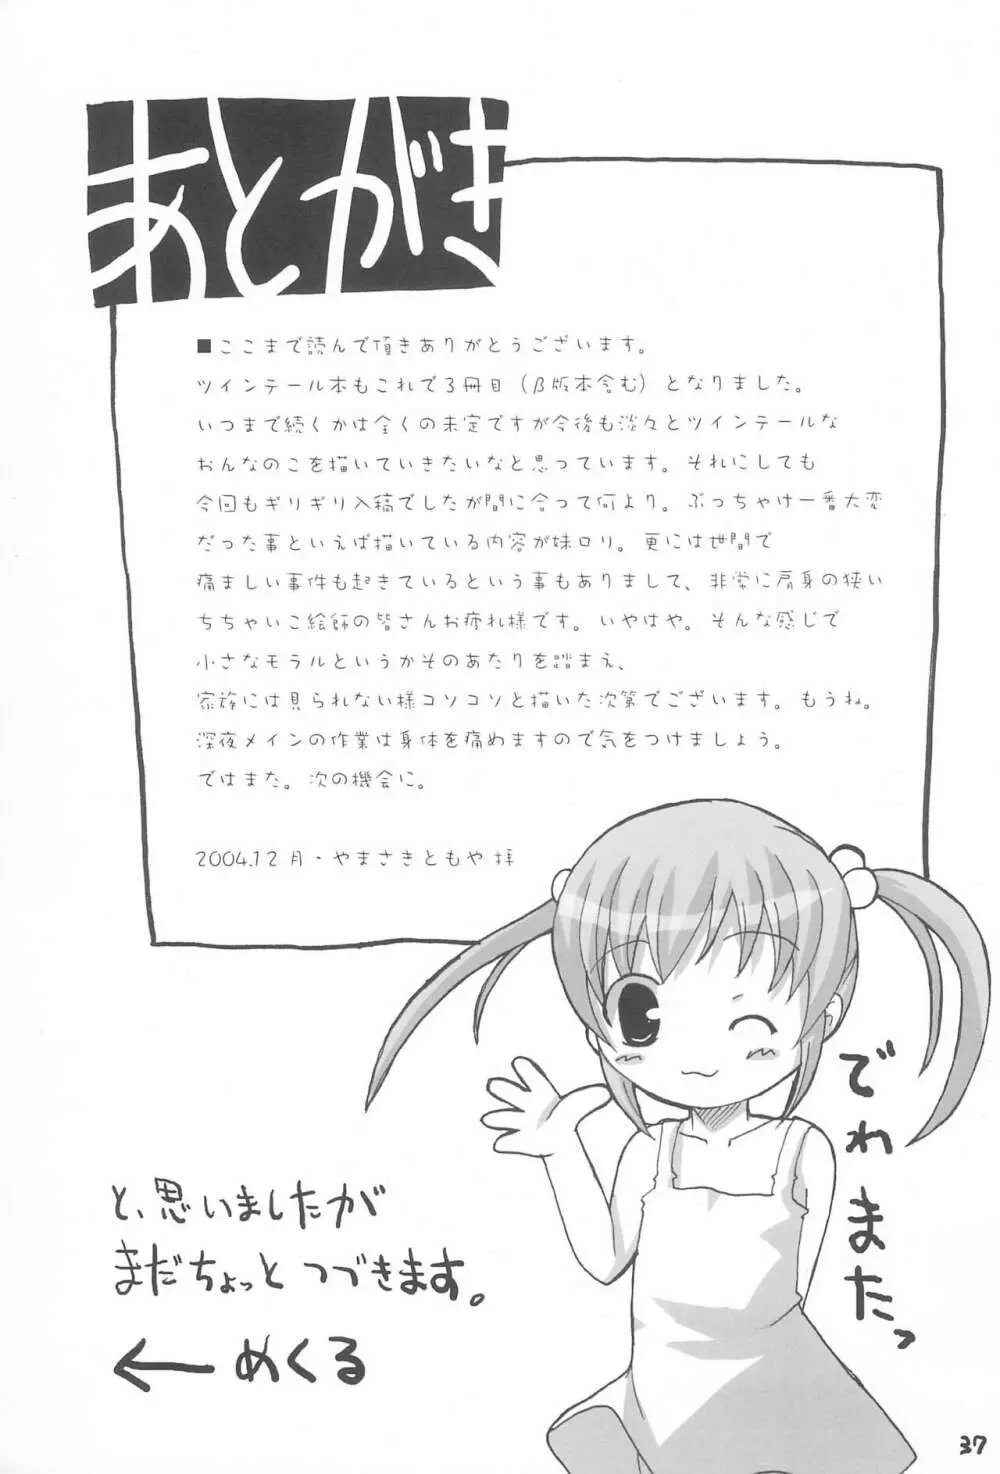 あとがき
■ここまで読んで頂きありがとうございます。
ツインテール本もこれで3冊目（β版本含む）となりました。
いつまで続くかは全くの未定ですが今後も淡々とツインテールな
おんなのこを描いていきたいなと思っています。それにしても
今回もギリギリ入稿でしたが間に合って何より。ぶっちゃけ一番大変
だった事といえば描いている内容が妹ロリ。更には世間で
痛ましい事件も起きているという事もありまして、非常に肩身の狭い
ちちゃいこ絵師の皆さんお疲れ様です。いやはや。そんな感じで
小さなモラルというかそのあたりを踏まえ、
家族には見られない様コソコソと描いた次第でございます。もうね。
深夜メインの作業は身体を痛めますので気をつけましょう。
ではまた。次の機会に。
2004.12月・やまさきともや 拝
でわまたっ
と、思いましたが
まだちょっとつづきます。
← めくる
37